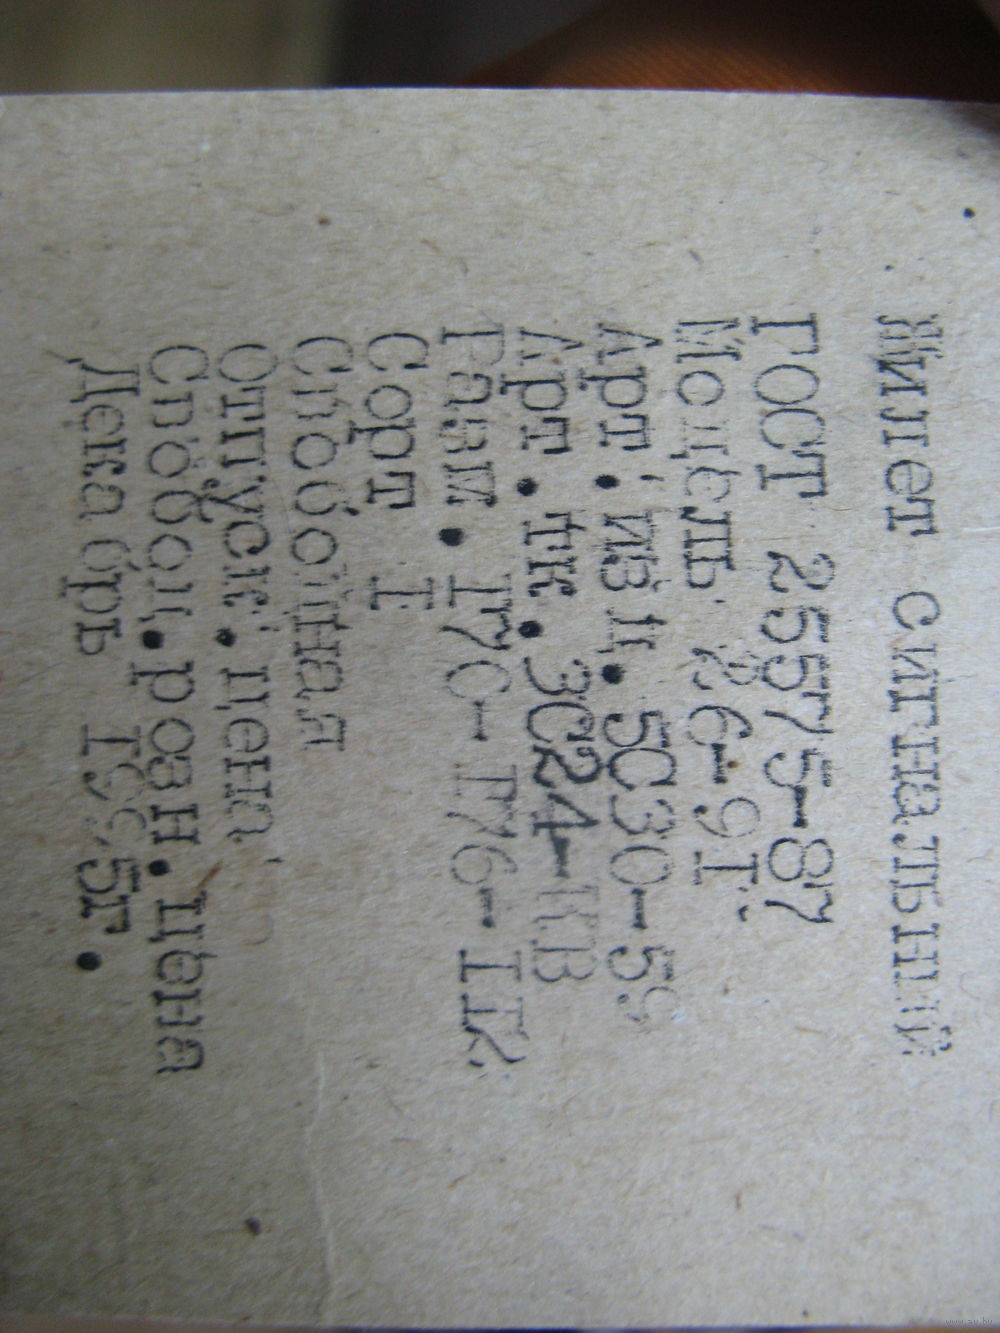 Жилет сигнальный
ГОСТ 25575-87
Модель 26-9I.
Арт. изд. 5С30-59
Арт. тк. 3С24-КВ
Разм. I70-I76-IIк
Сорт I
Свободная
отпуск. цена
Свобод.розн.цена
Декабрь I995г.
www.ay.by